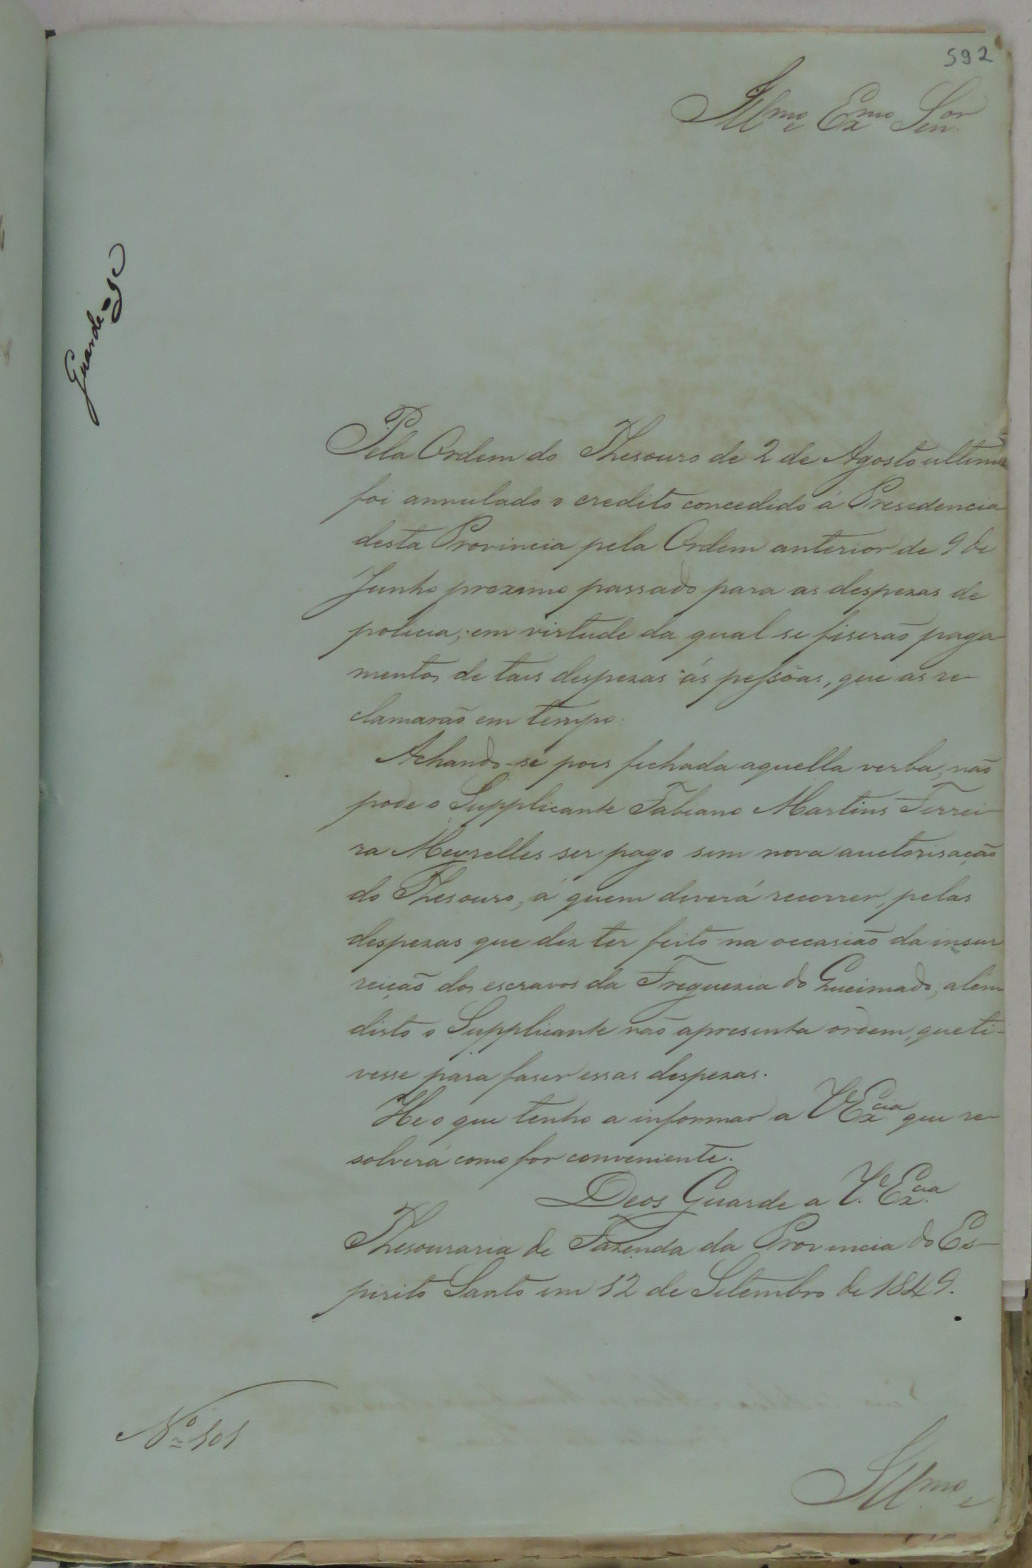 592
Illmo e Exmo Senr
Guarde-se
Pela Ordem do Thesouro de 2 de Agosto ultimo
foi annulado o credito concedido á Presidencia
desta Provincia pela Ordem anterior de 9 de
Junho proximo passado para as despezas de
policia, em virtude da qual se fiserão paga
mentos de taes despezas ás pessoas, que as re-
clamarão em tempo.
Achando-se pois fechada aquella verba, não
pode o Supplicante Fabiano Martins Ferrei-
ra Meyrelles ser pago sem nova auctorisação
do Thesouro, á quem deverá recorrer, pelas
despezas que diz ter feito na occasião da insur
reição dos escravos da Freguezia do Queimado, alem
disto o Supplicante não apresenta ordem, que ti-
vesse para faser essas despezas.
He o que tenho a informar a V. Exca que re-
solverá como for conveniente.
Deos Guarde a V. Exca
Thesouraria de Fazenda da Provincia do Es-
pirito Santo em 12 de Setembro de 1849.
No 101
Illmo e